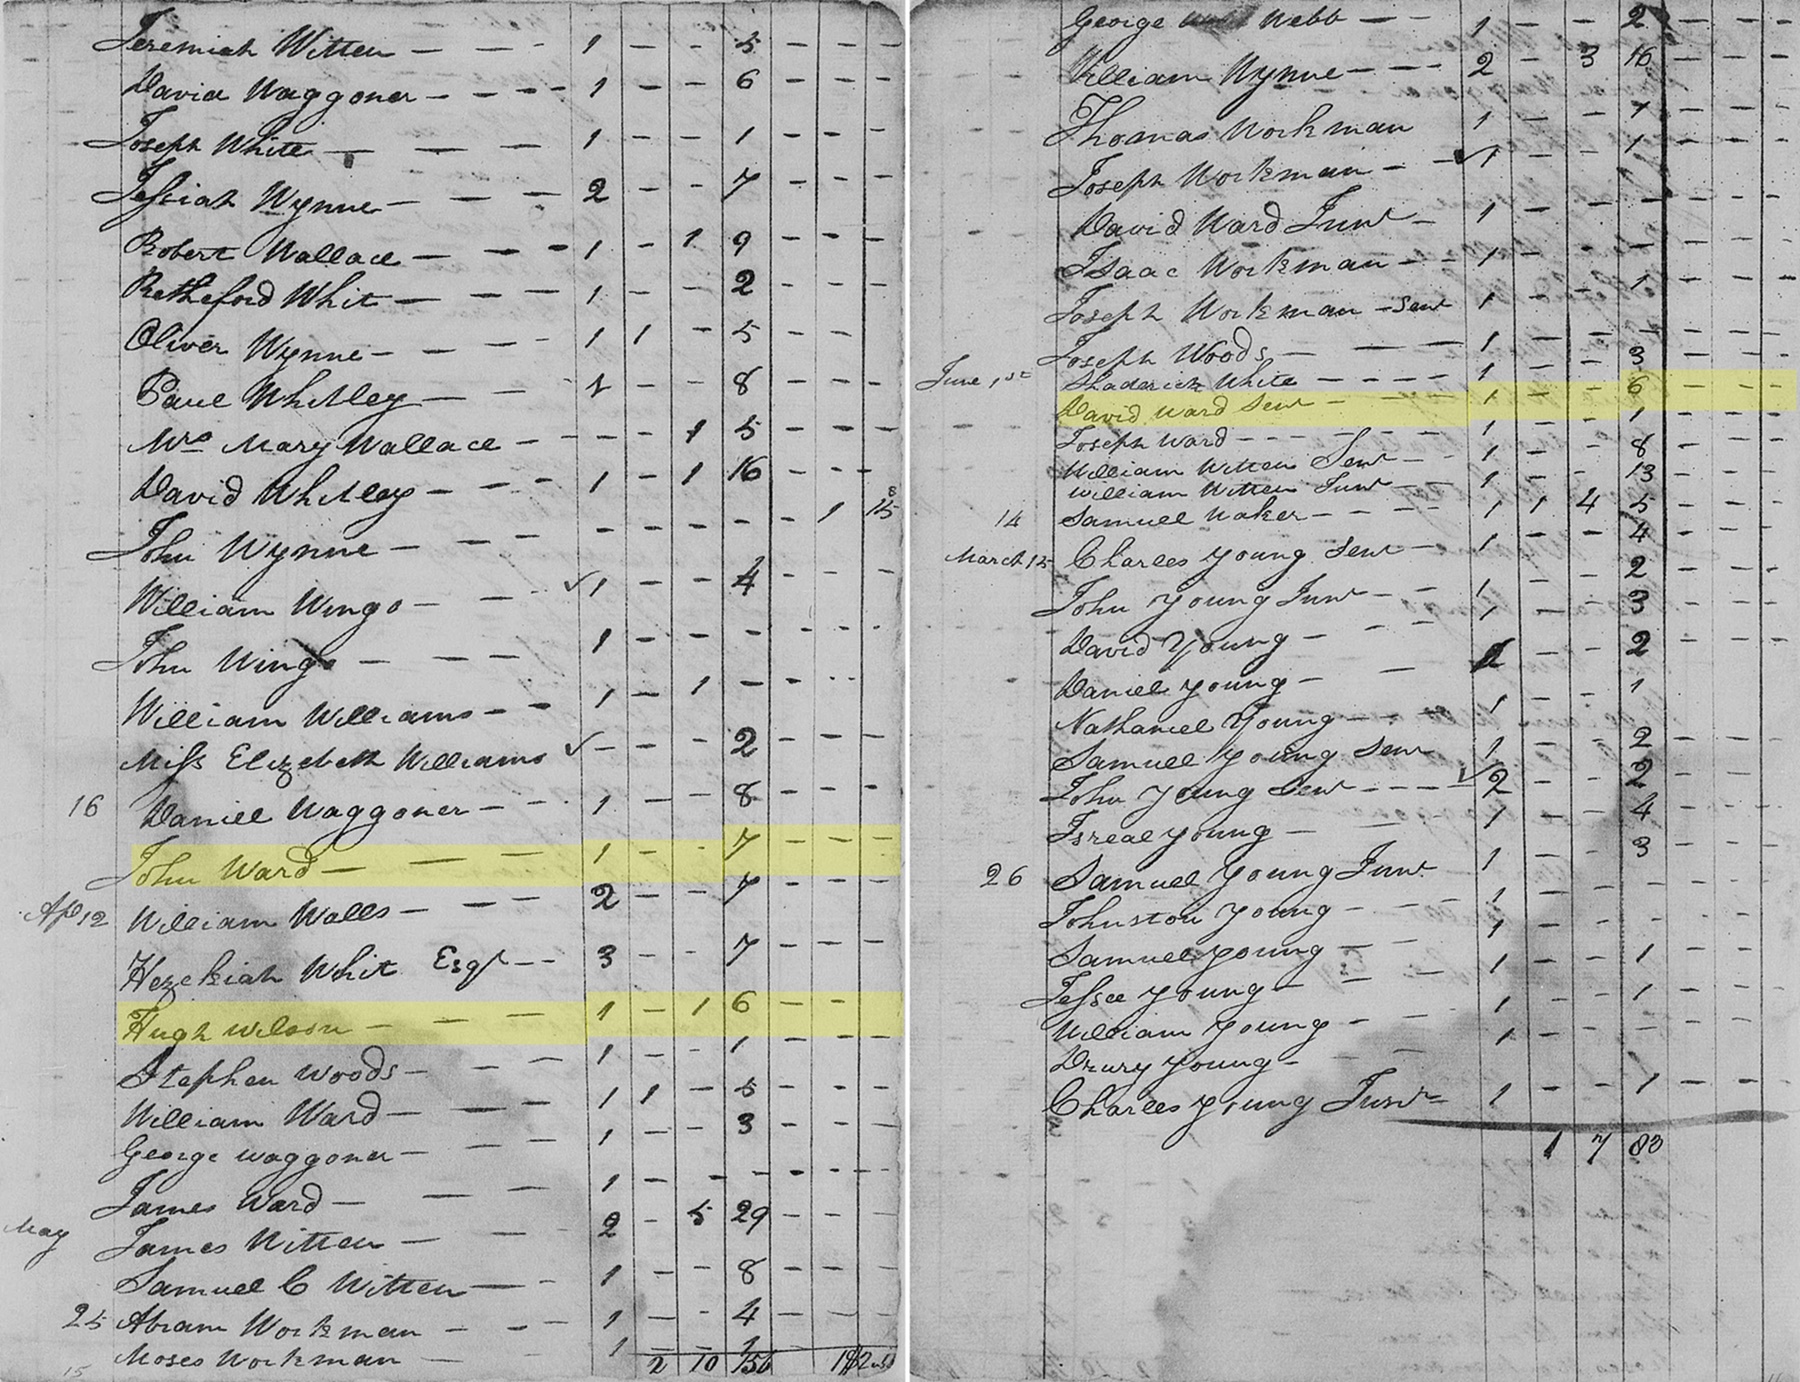 Jeremiah Witten — — - 1 — — 5 — — -
David Waggoner - - - - 1 - — 6 - - -
Joseph White — — — 1 — - 1 - - -
Jessiah Wynne — — — 2 - - 7 - - -
Robert Wallace — - - 1 - 1 9 - - -
Retheford Whit — — - 1 - - 2 - - -
Oliver Wynne - — — 1 1 - 5 - —
Paul Whitley — — 1 - - 8 - - -
Mrs Mary Wallace - - - - - 1 5 - - -
David Whitley - - - 1 - 1 16 - - -
John Wynne — - - - - - - - 1 15 8
William Wingo - — ✓1 - - 4 - - -
John Wingo — — — 1 - - - - - -
William Williams - - 1 - 1 - - - -
Miss Elizebeth Williams ✓- - - 2 - - -
16 Daniel Waggoner - - - 1 — - 8 - - -
John Ward — — — 1 - - 7 - - -
Apl 12 William Walls - - — 2 - - 7
Hezekiah Whit Esqr - - 3 - - 7 - - -
Hugh Wilson - — — 1 - 1 6 - -
Stephen Woods - - — 1 - - 1
William Ward — — — 1 1 - 5
George Waggoner — - - 1 - - 3
James Ward — — — 1 - - - - - -
May James Witten — — 2 - 5 29 - - -
Samuel C Witten — - 1 — - 8 - - -
25 Abram Workman — - - 1 - - 4 - - -
Moses Workman — - 1 - - 1
15 2 10 156
George Webb — - - 1 - - 2 - - -
William Wynne - - - - 2 - 3 16 - - -
Thomas Workman 1 - - 1 - - -
Joseph Workman - - ✓1 - - 1 - - -
David Ward Junr — 1 - - - - - -
Isaac Workman - - - 1 - - - - - -
Joseph Workman - Senr 1 - - 1 - - -
Joseph Woods — — — 1 - - - - - -
June 1st Shaderick White - - - - 1 - - 3 - - -
David Ward Senr - - - - 1 - - 6 - - -
Joseph Ward - - - - - 1 - - 1 - - -
William Witten Senr - - 1 - - 8 - - -
William Witten Junr - - - 1 - - 13 - - -
14 Samuel Waker - - - - - 1 1 4 5 - - -
March 15 Charles Young Senr - 1 - - 4 - - -
John Young Junr - - 1 - - 2 - - -
David Young - - - 1 - - 3 - - -
Daniel Young - — 1 - - 2 - - -
Nathaniel Young - - - - 1 - - 1
Samuel Young Senr 1 - - 2 - - -
John Young Senr - - - - ✓2 - - 2 - - -
Isreal Young - — - 1 - - 4 - - -
26 Samuel Young Junr 1 - - 3 - - -
Johnston Young - - - 1
Samuel Young - - - 1 - - - - - -
Jessee Young - - - 1 - - 1 - - -
William Young - - - 1 - - 1 - - -
Drury Young - - - 1 - - - - - -
Charles Young Junr - 1 - - 1 - - -
1 7 83